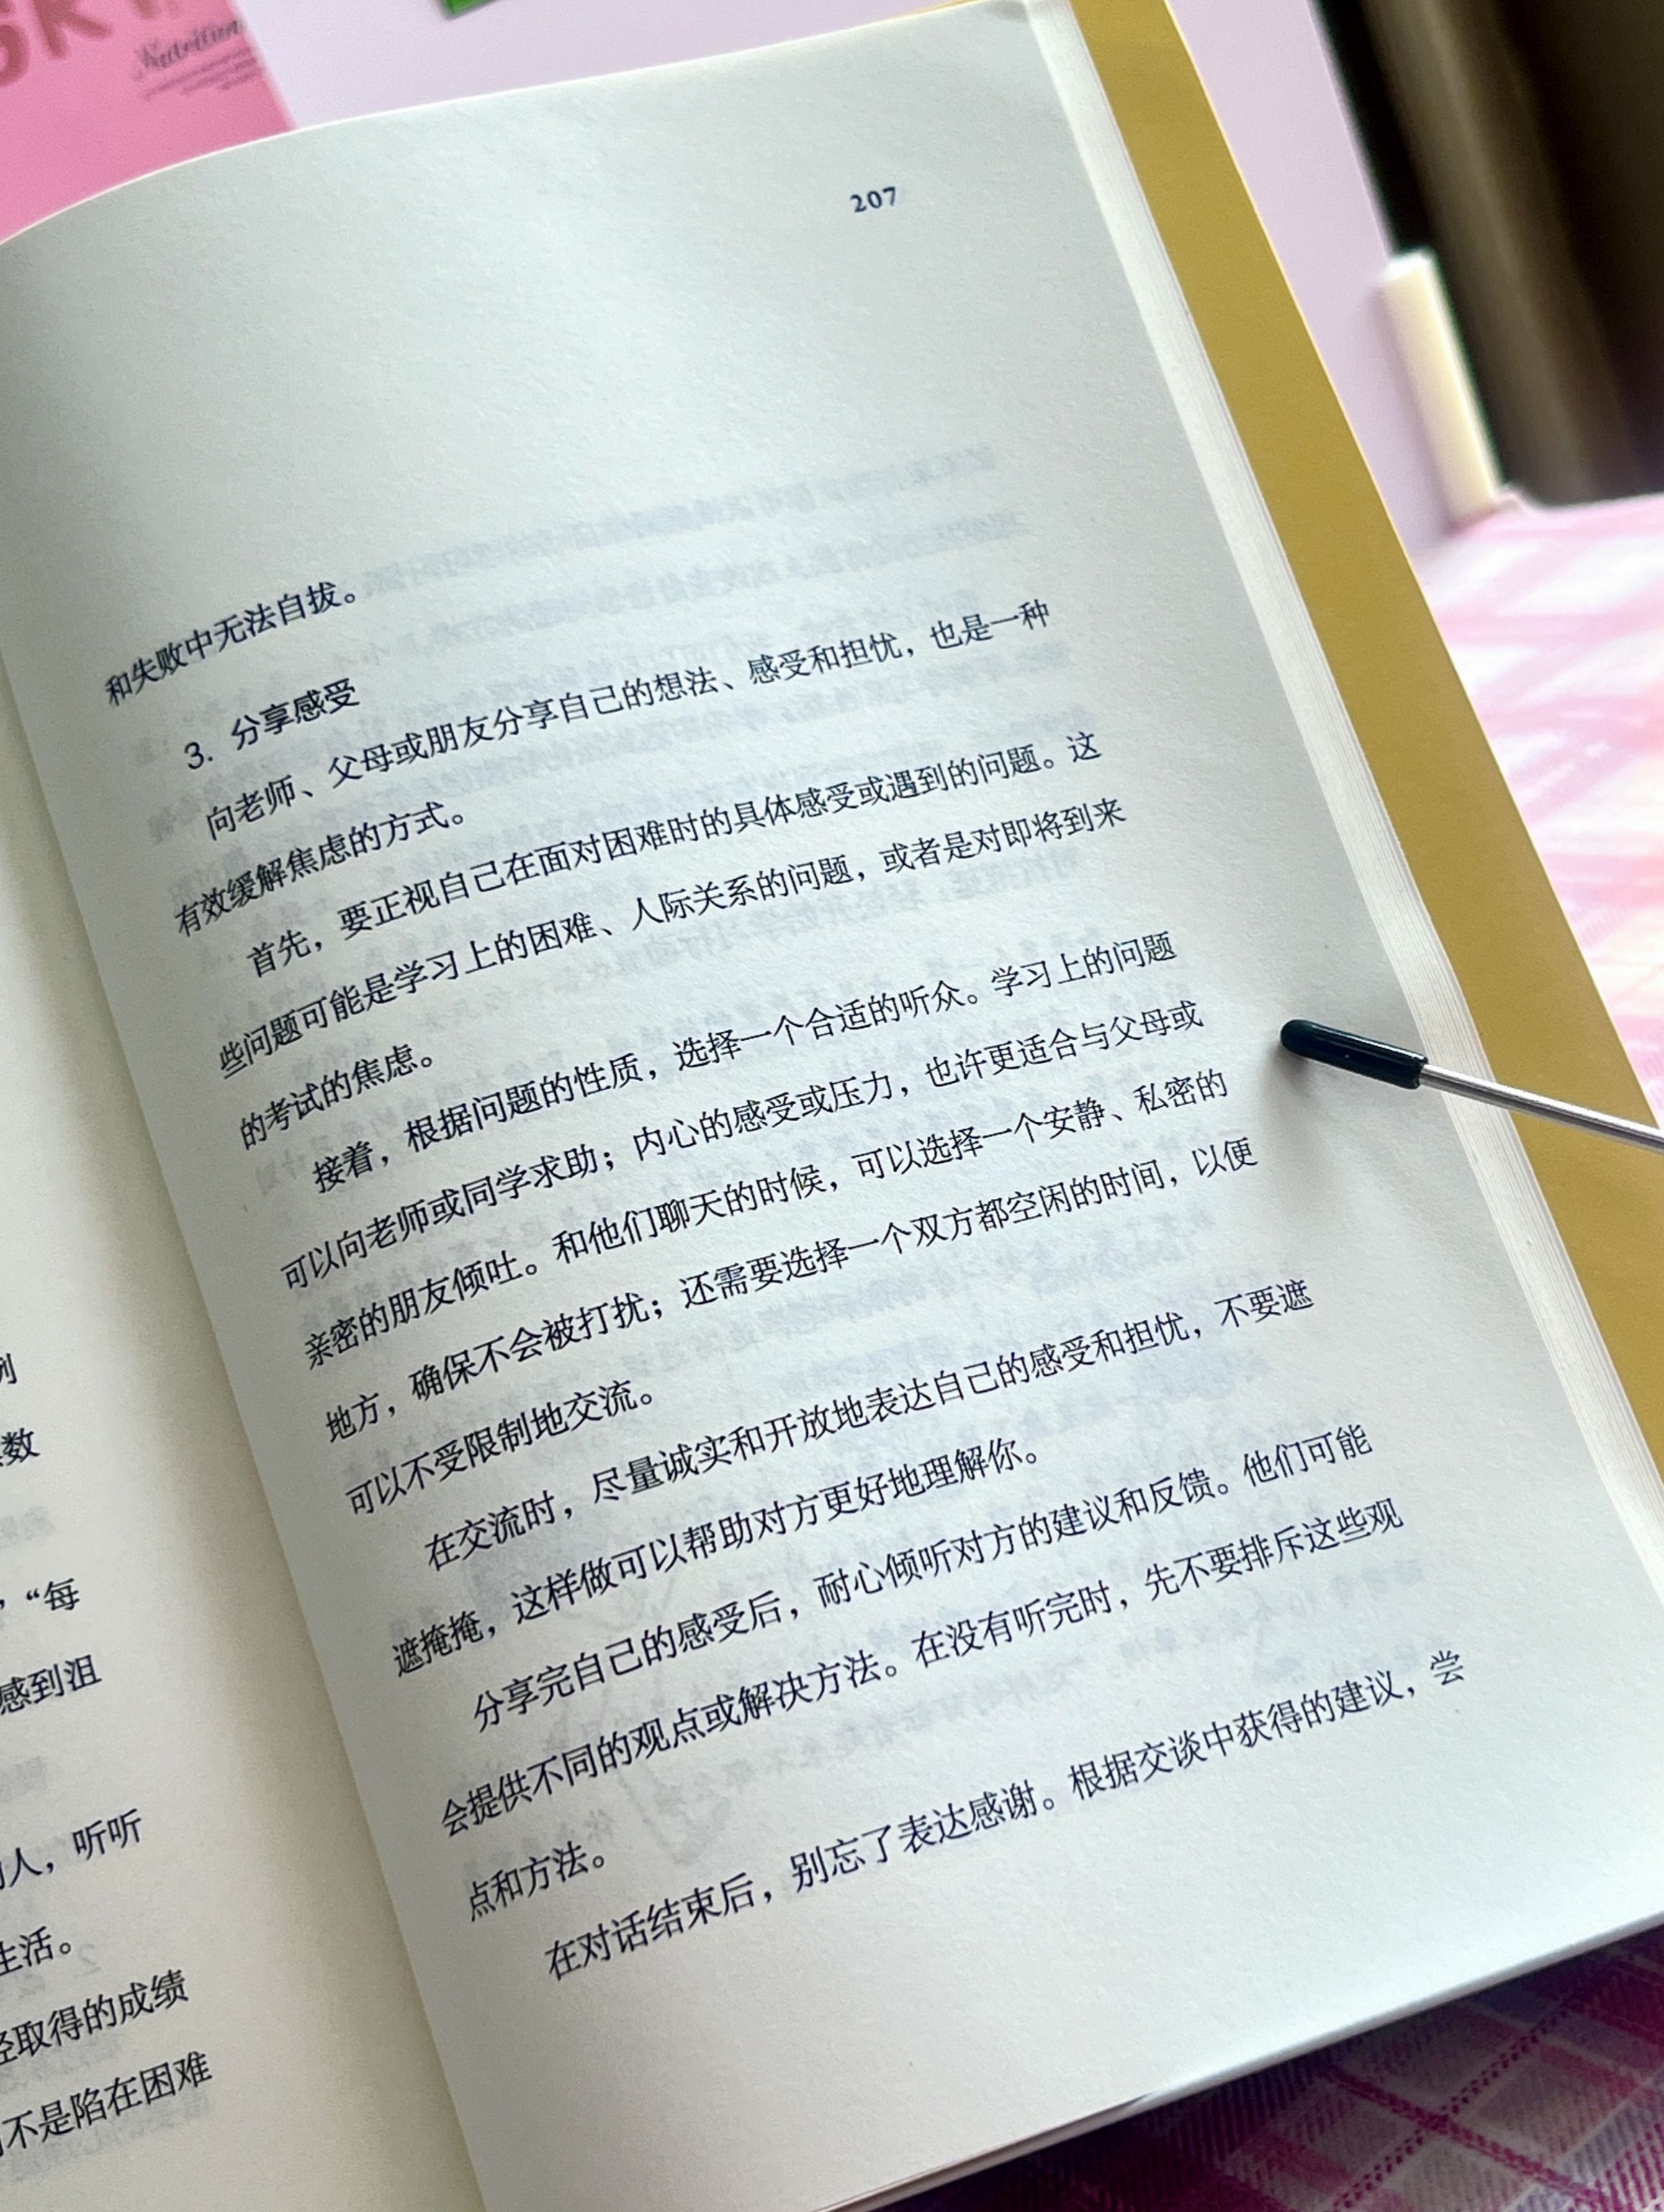 Nutrition
例
数
，“每
感到沮
人，听听
生活。
取得的成绩
不是陷在困难
207
和失败中无法自拔。
3. 分享感受
向老师、父母或朋友分享自己的想法、感受和担忧，也是一种
有效缓解焦虑的方式。
首先，要正视自己在面对困难时的具体感受或遇到的问题。这
些问题可能是学习上的困难、人际关系的问题，或者是对即将到来
的考试的焦虑。
接着，根据问题的性质，选择一个合适的听众。学习上的问题
可以向老师或同学求助；内心的感受或压力，也许更适合与父母或
亲密的朋友倾吐。和他们聊天的时候，可以选择一个安静、私密的
地方，确保不会被打扰；还需要选择一个双方都空闲的时间，以便
可以不受限制地交流。
在交流时，尽量诚实和开放地表达自己的感受和担忧，不要遮
遮掩掩，这样做可以帮助对方更好地理解你。
分享完自己的感受后，耐心倾听对方的建议和反馈。他们可能
会提供不同的观点或解决方法。在没有听完时，先不要排斥这些观
点和方法。
在对话结束后，别忘了表达感谢。根据交谈中获得的建议，尝